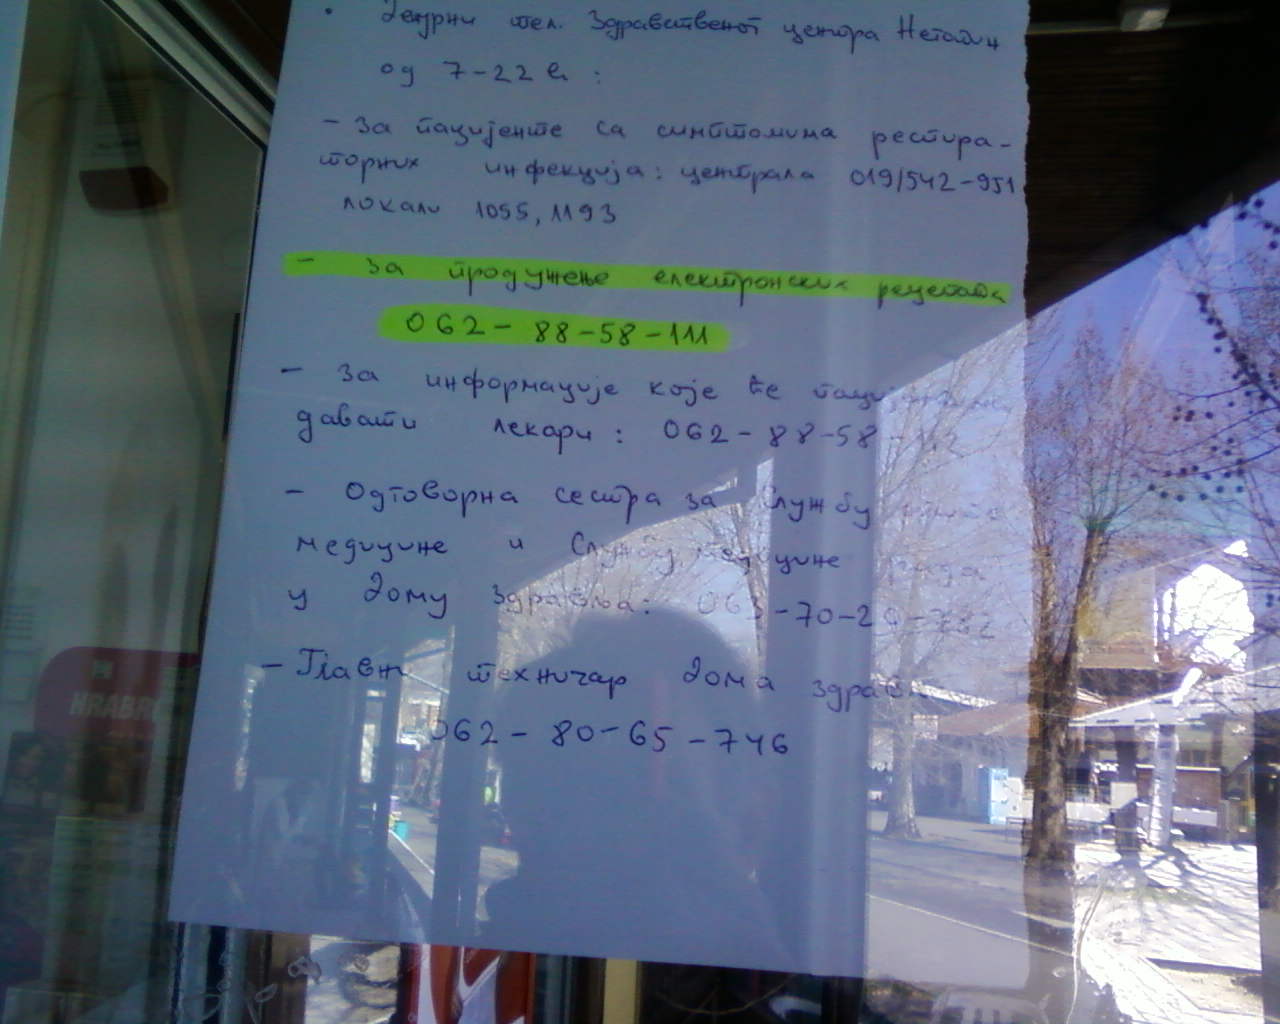 • Дежурни тел. Здравственог центра Неготин
од 7-22 h :
- За пацијенте са симптомима респира-
торних инфекција: централа 019/542-951
локали 1055, 1193
- За продужење електронских рецепата
062-88-58-111
- За информације које ће
давати лекари: 062-88-58
- Одговорна сестра за Службу
медицине и Службу медицине рада
у Дому здравља: -70-
- Главни техничар Дома
062-80-65-746
HRABRI